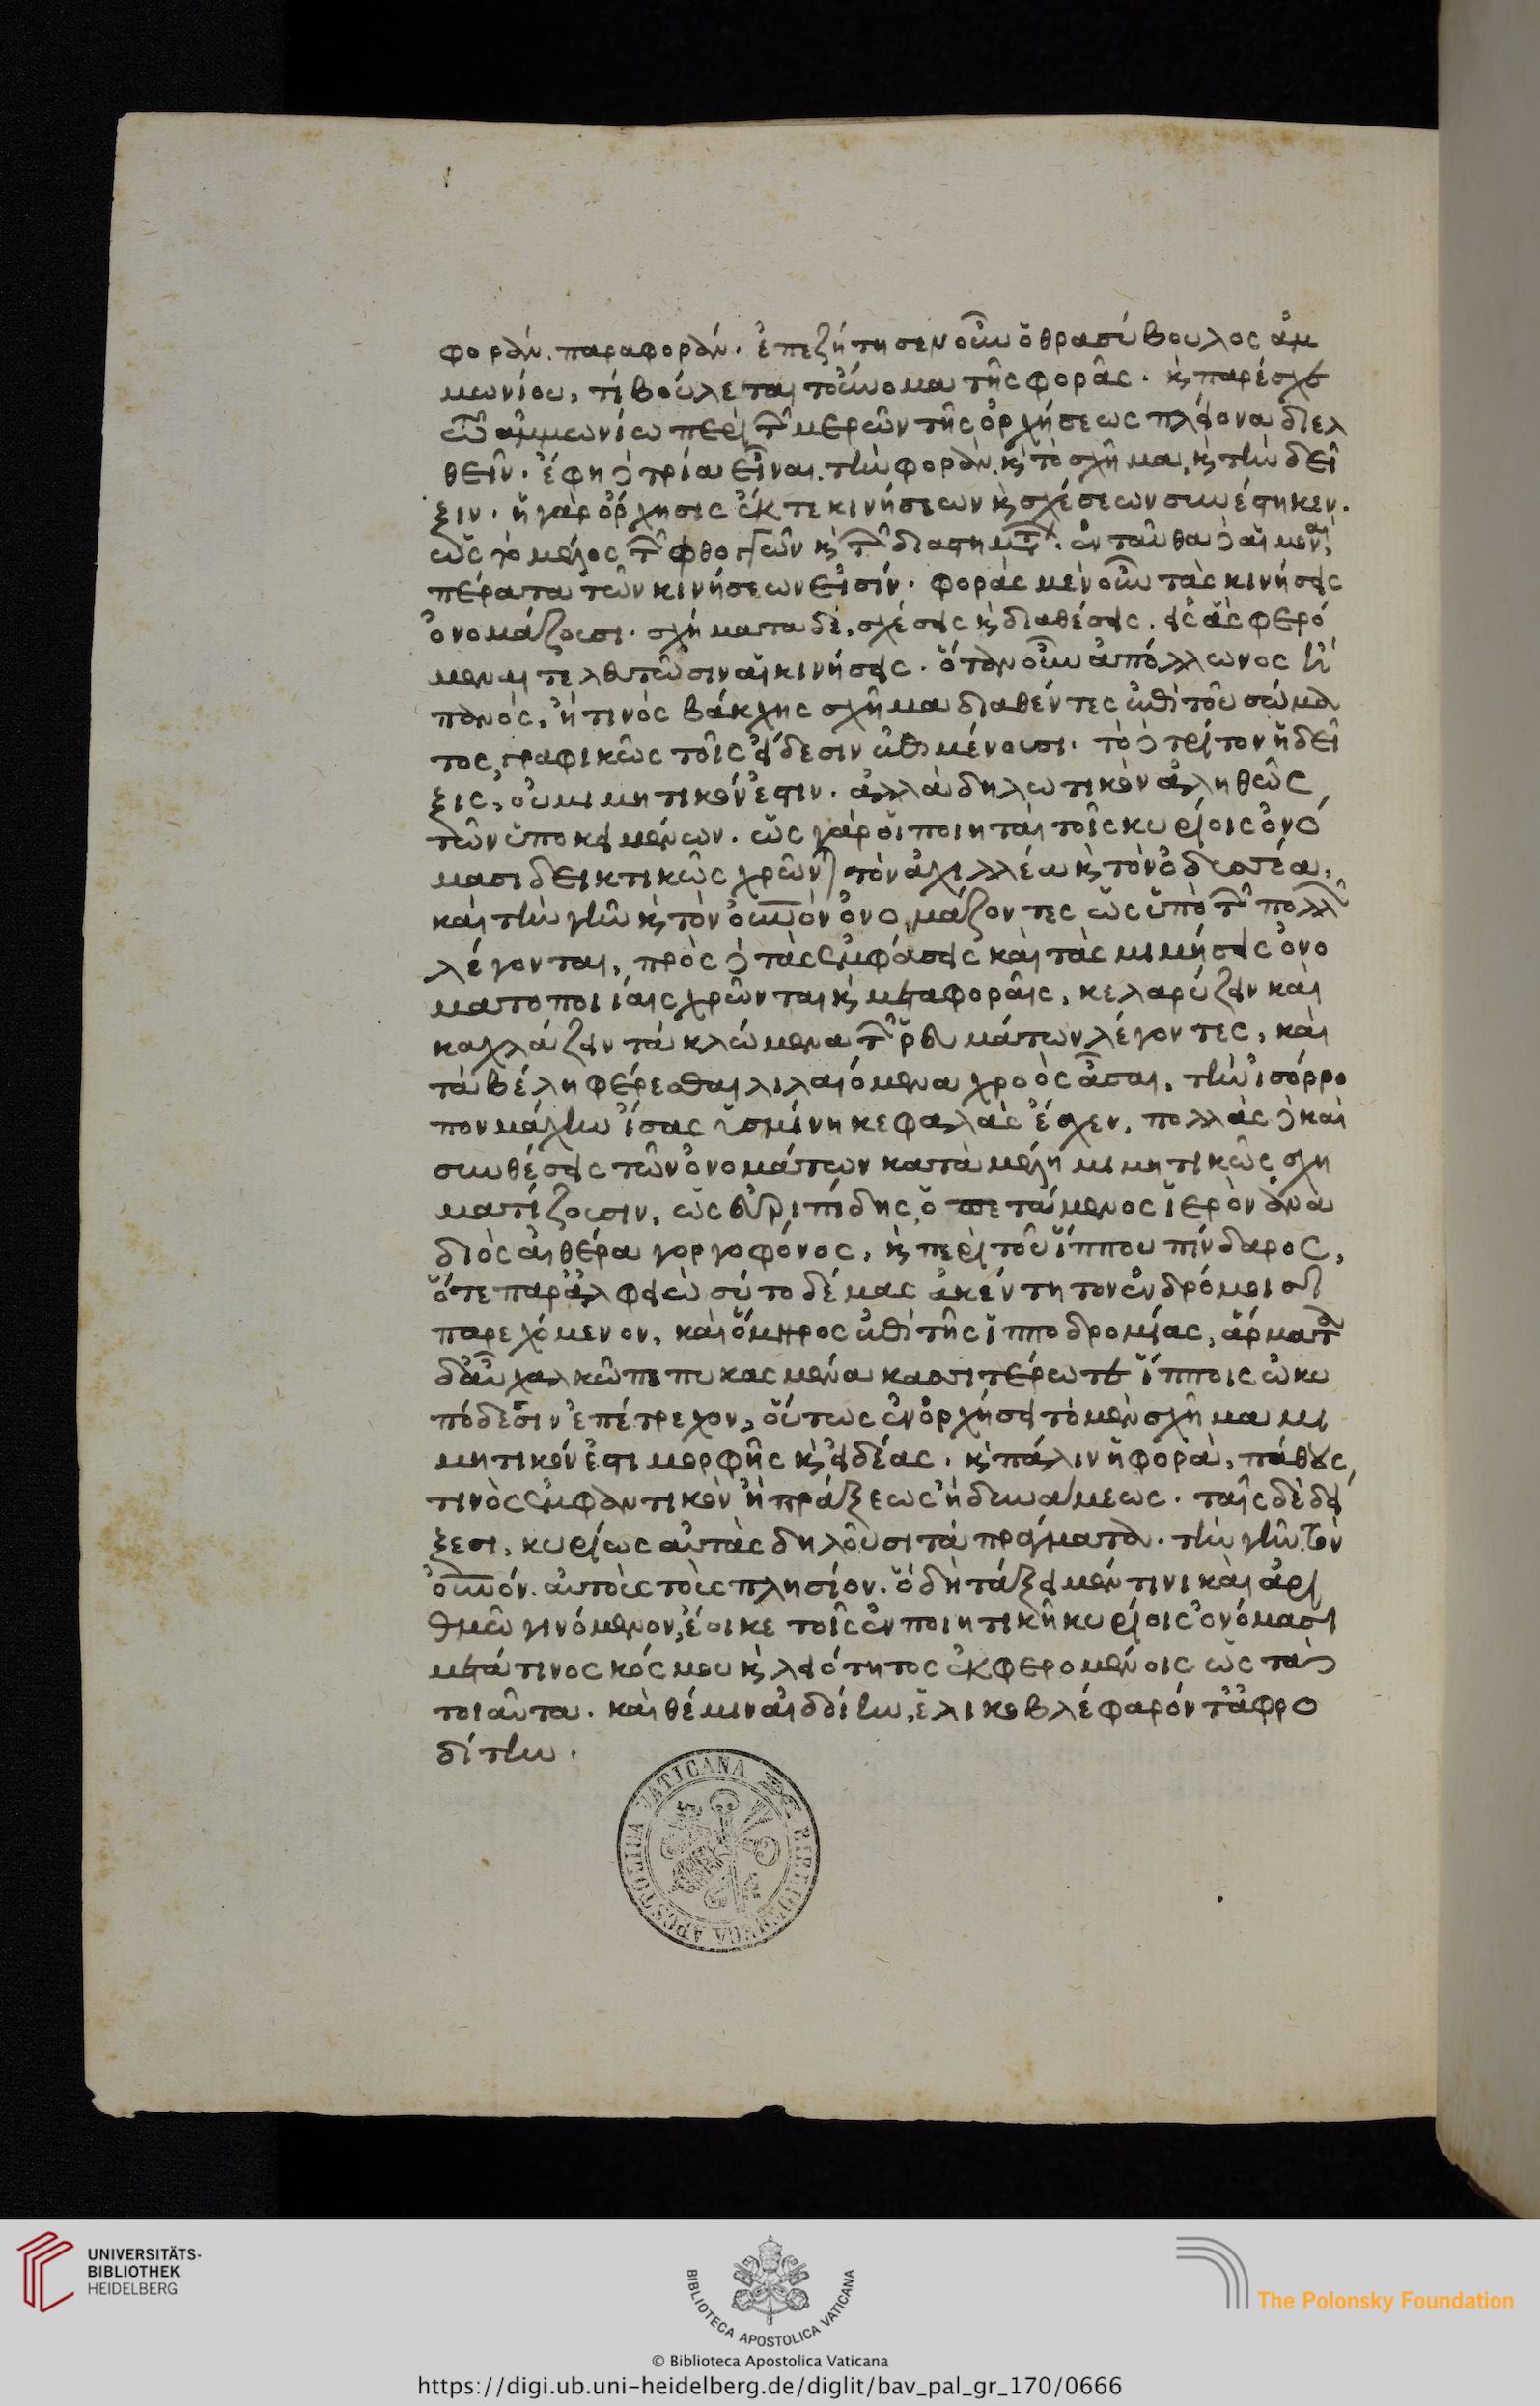 φορὰν παραφοράν. ἐπεζήτησεν οὖν ὁ θρασύβουλος ἀμ
μωνίου, τί βούλεται τοὔνομα τῆς φορᾶς. κ παρέσχε
τῶ ἀμμωνίω περὶ τῶν μερῶν τῆς ὀρχήσεως πλείονα διελ
θεῖν. ἔφη δὲ τρία εἶναι. τὴν φορὰν. κ τὸ σχῆμα, κ τὴν δεῖ
ξιν. ἡ γὰρ ὄρχησις ἔκ τε κινήσεων κ σχέσεων συνέστηκεν.
ὡς τὸ μέλος τῶν φθόγγων κ τῶν διαστημάτων. ἐνταῦθα δὲ αἱ μοναὶ
πέρατα τῶν κινήσεων εἰσίν. φορὰς μὲν οὖν τὰς κινήσεις
ὀνομάζουσι. σχήματα δὲ, σχέσεις κ διαθέσεις. εἰς ἃς φερό
μεναι τελευτῶσιν αἱ κινήσεις. ὅταν οὖν ἀπόλλωνος ἢ
πανὸς, ἤ τινος βάκχης σχῆμα διαθέντες ἐπὶ τοῦ σώμα
τος, γραφικῶς τοῖς εἴδεσιν ἐπιμένουσι. τὸ δὲ τρίτον ἡ δεῖ
ξις, οὐ μιμητικόν ἐστιν. ἀλλὰ δηλωτικὸν ἀληθῶς
τῶν ὑποκειμένων. ὡς γὰρ οἱ ποιηταὶ τοῖς κυρίοις ὀνό
μασι δεικτικῶς χρῶνται τὸν ἀχιλλέα κ τὸν ὀδυσσέα,
καὶ τὴν γῆν κ τὸν οὐνὸν ὀνομάζοντες ὡς ὑπὸ τῶν πολλῶν
λέγονται, πρὸς δὲ τὰς ἐμφάσεις καὶ τὰς μιμήσεις ὀνο
ματοποιίαις χρῶνται κ μεταφοραῖς, κελαρύζειν καὶ
καχλάζειν τὰ κλώμενα τῶν ῥευμάτων λέγοντες, καὶ
τὰ βέλη φέρεσθαι λιλαιόμενα χροὸς ἆσαι, τὴν ἰσόρρο
πον μάχην ἴσας ὑσμίνη κεφαλὰς ἔχεν, πολλὰς δὲ καὶ
συνθέσεις τῶν ὀνομάτων κατὰ μέλη μιμητικῶς σχη
ματίζουσιν, ὡς εὐριπίδης ὁ πετάμενος ἱερὸν ἀνὰ
διὸς αἰθέρα γοργοφόνος, κ περὶ τοῦ ἵππου πίνδαρος,
ὅτε παρ' ἀλφειῶ σύτο δέμας ἀκέντητον ἐν δρόμοισι
παρεχόμενον, καὶ ὅμηρος ἐπὶ τῆς ἱπποδρομίας, ἅρματα
δ' αὖ χαλκῶ πεπυκασμένα κασσιτέρω τε ἵπποις ὠκυ
πόδεσσιν ἐπέτρεχον, οὕτως ἐν ὀρχήσει τὸ μὲν σχῆμα μι
μητικόν ἐστι μορφῆς κ ἰδέας. κ πάλιν ἡ φορὰ, πάθους
τινὸς ἐμφαντικὸν ἢ πράξεως ἢ δυνάμεως. ταῖς δὲ δεί
ξεσι, κυρίως αὐτὰς δηλοῦσι τὰ πράγματα. τὴν γῆν. τὸν
οὐνόν. αὐτοὺς τοὺς πλησίον. ὃ δὴ τάξει μέν τινι καὶ ἀρι
θμῶ γινόμενον, ἔοικε τοῖς ἐν ποιητικῆ κυρίοις ὀνόμασι
μετά τινος κόσμου κ λειότητος ἐκφερομένοις ὡς τὰ
τοιαῦτα. καὶ θέμιν αἰδοίην, ἑλικοβλέφαρόν τ' ἀφρο
δίτην.
BIBLIOTHECA APOSTOLICA VATICANA
UNIVERSITÄTS-
BIBLIOTHEK
HEIDELBERG
BIBLIOTECA APOSTOLICA VATICANA
The Polonsky Foundation
© Biblioteca Apostolica Vaticana
https://digi.ub.uni-heidelberg.de/diglit/bav_pal_gr_170/0666